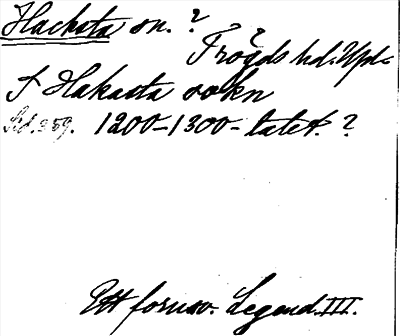 Hacksta sn. ?
Trögds hd. Upl.
I Hakasta sokn
Sid. 359. 1200-1300-talet. ?
Ett fornsv. Legend. III.